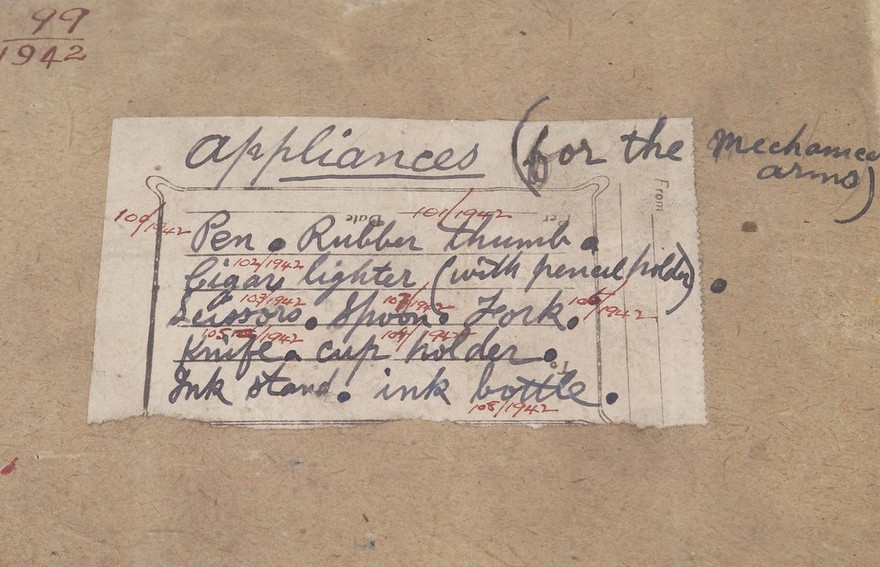 99
1942
Appliances (for the mechanical
arms)
From
Date
Per
100/1942
101/1942
Pen. Rubber thumb.
102/1942
Cigar lighter (with pencil holder).
103/1942
107/1942
106/1942
Scissors. Spoon. Fork.
105/1942
104/1942
Knife. cup holder.
To
Ink stand. ink bottle.
108/1942